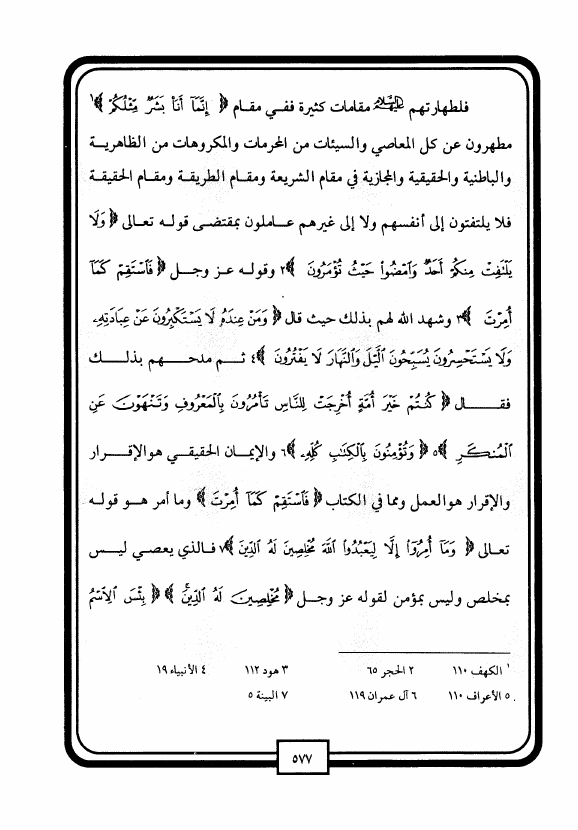 فلطهارتهم عليهم السلام مقامات كثيرة ففي مقام ﴿ إِنَّمَا أَنَا بَشَرٌ مِثْلُكُمْ ﴾١
مطهرون عن كل المعاصي والسيئات من المحرمات والمكروهات من الظاهرية
والباطنية والحقيقية والمجازية في مقام الشريعة ومقام الطريقة ومقام الحقيقة
فلا يلتفتون إلى أنفسهم ولا إلى غيرهم عاملون بمقتضى قوله تعالى ﴿ وَلَا
يَلْتَفِتْ مِنكُمْ أَحَدٌ وَامْضُوا حَيْثُ تُؤْمَرُونَ ﴾٢ وقوله عز وجل ﴿ فَاسْتَقِمْ كَمَا
أُمِرْتَ ﴾٣ وشهد الله لهم بذلك حيث قال ﴿ وَمَنْ عِندَهُ لَا يَسْتَكْبِرُونَ عَنْ عِبَادَتِهِ
وَلَا يَسْتَحْسِرُونَ يُسَبِّحُونَ الَّيْلَ وَالنَّهَارَ لَا يَفْتُرُونَ ﴾٤ ثم مدحهم بذلك
فقال ﴿ كُنتُمْ خَيْرَ أُمَّةٍ أُخْرِجَتْ لِلنَّاسِ تَأْمُرُونَ بِالْمَعْرُوفِ وَتَنْهَوْنَ عَنِ
الْمُنكَرِ ﴾٥ ﴿ وَتُؤْمِنُونَ بِالْكِتَابِ كُلِّهِ ﴾٦ والإيمان الحقيقي هوالإقرار
والإقرار هوالعمل ومما في الكتاب ﴿ فَاسْتَقِمْ كَمَا أُمِرْتَ ﴾ وما أمر هو قوله
تعالى ﴿ وَمَا أُمِرُوا إِلَّا لِيَعْبُدُوا اللَّهَ مُخْلِصِينَ لَهُ الدِّينَ ﴾٧ فالذي يعصي ليس
بمخلص وليس بمؤمن لقوله عز وجل ﴿ مُخْلِصِينَ لَهُ الدِّينَ ﴾ ﴿ بِئْسَ الِاسْمُ
١ الكهف ١١٠ ٢ الحجر ٦٥ ٣ هود ١١٢ ٤ الأنبياء ١٩
٥ الأعراف ١١٠ ٦ آل عمران ١١٩ ٧ البينة ٥
٥٧٧